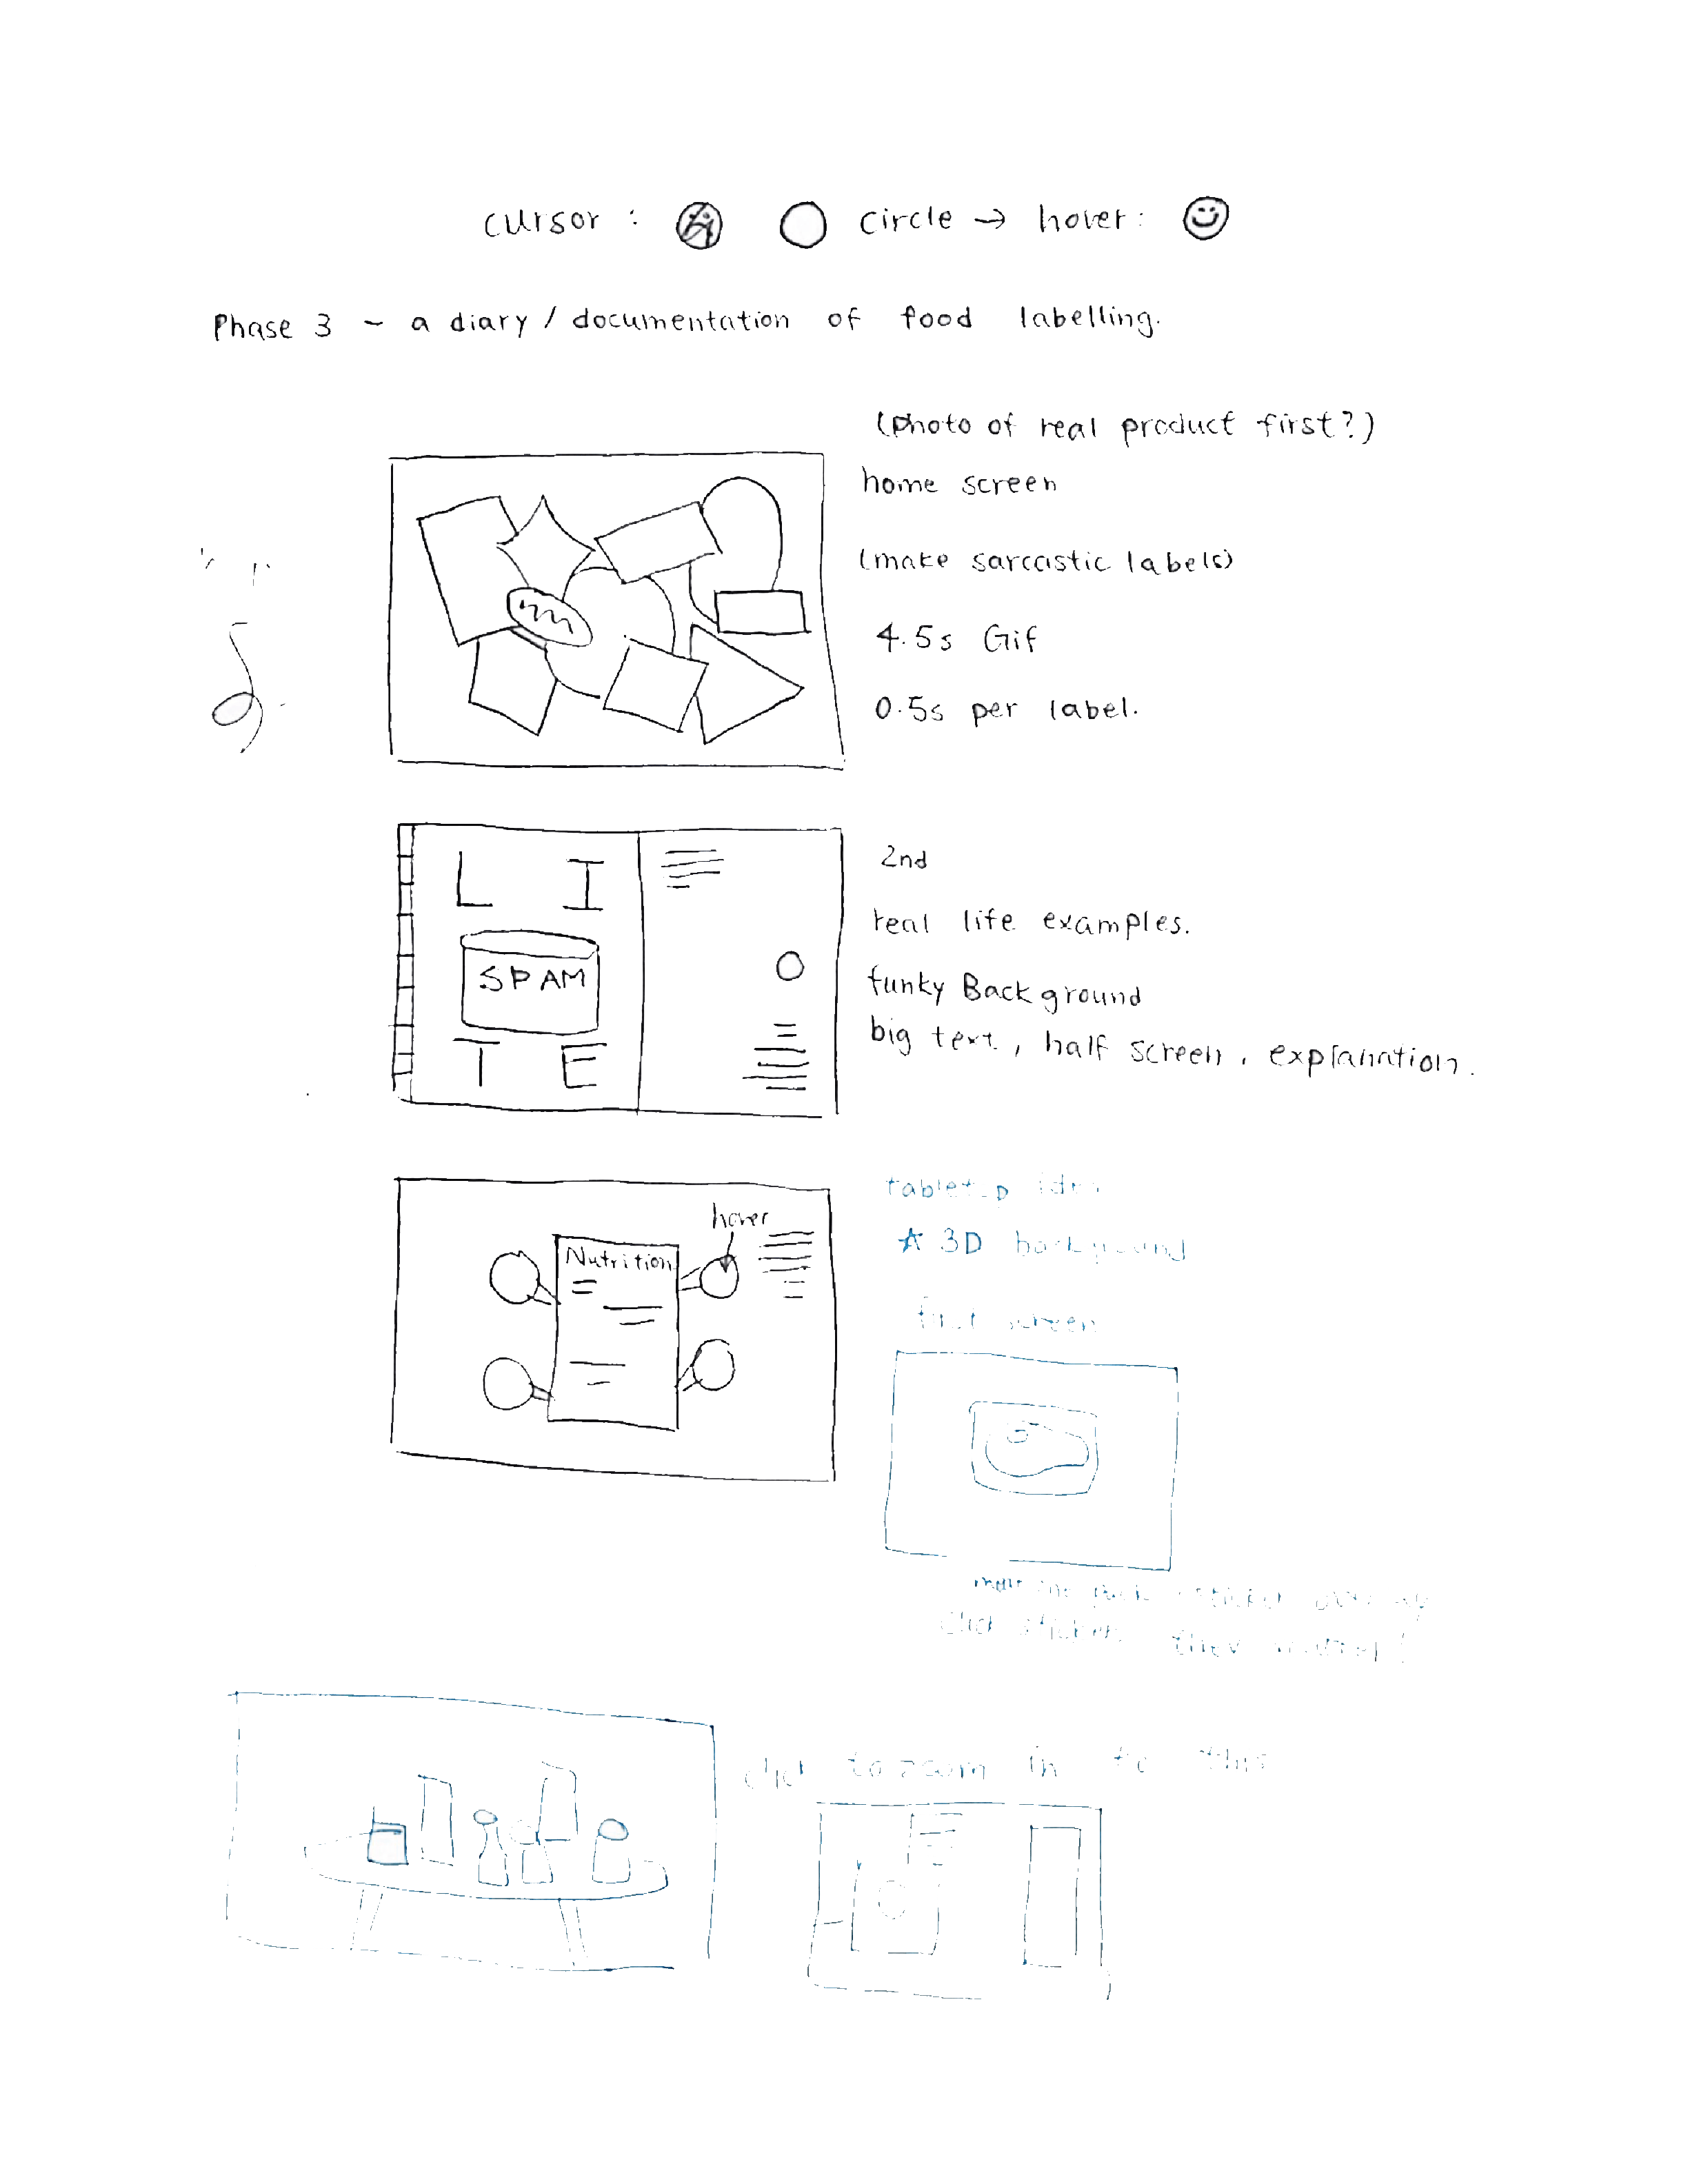 cursor : circle → hover :
Phase 3 - a diary / documentation of food labelling.
(photo of real product first?)
home screen
(make sarcastic labels)
4.5s Gif
0.5s per label.
L I
SPAM
T E
2nd
real life examples.
funky Background
big text, half screen, explanation.
hover
Nutrition
3D background
screen
click to zoom in to this